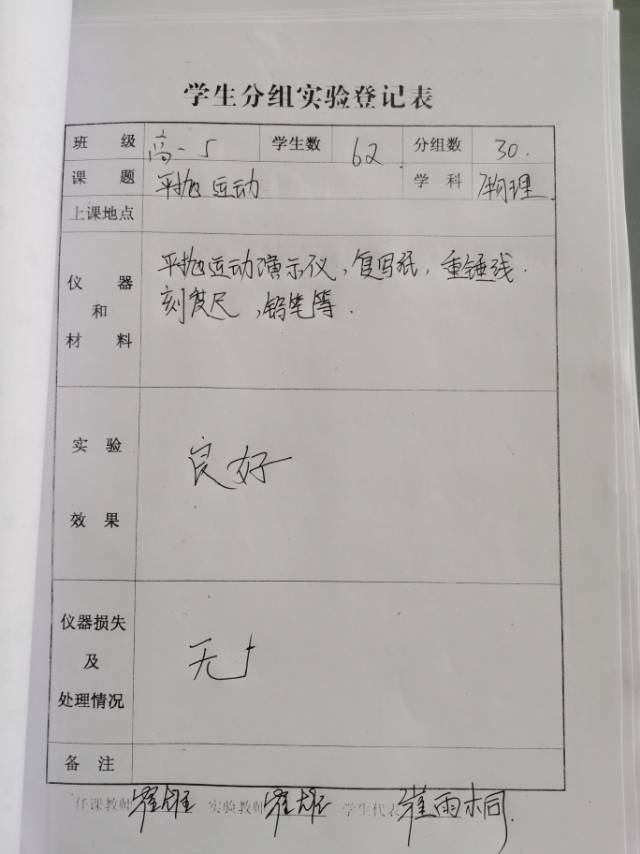 学生分组实验登记表
班级 高一5 学生数 62 分组数 30.
课题 平抛运动 学科 物理
上课地点
仪器和材料 平抛运动演示仪,复写纸,重锤线.
刻度尺,铅笔等.
实验效果 良好
仪器损失及处理情况 无
备注
任课教师 实验教师 学生代表 崔雨桐.